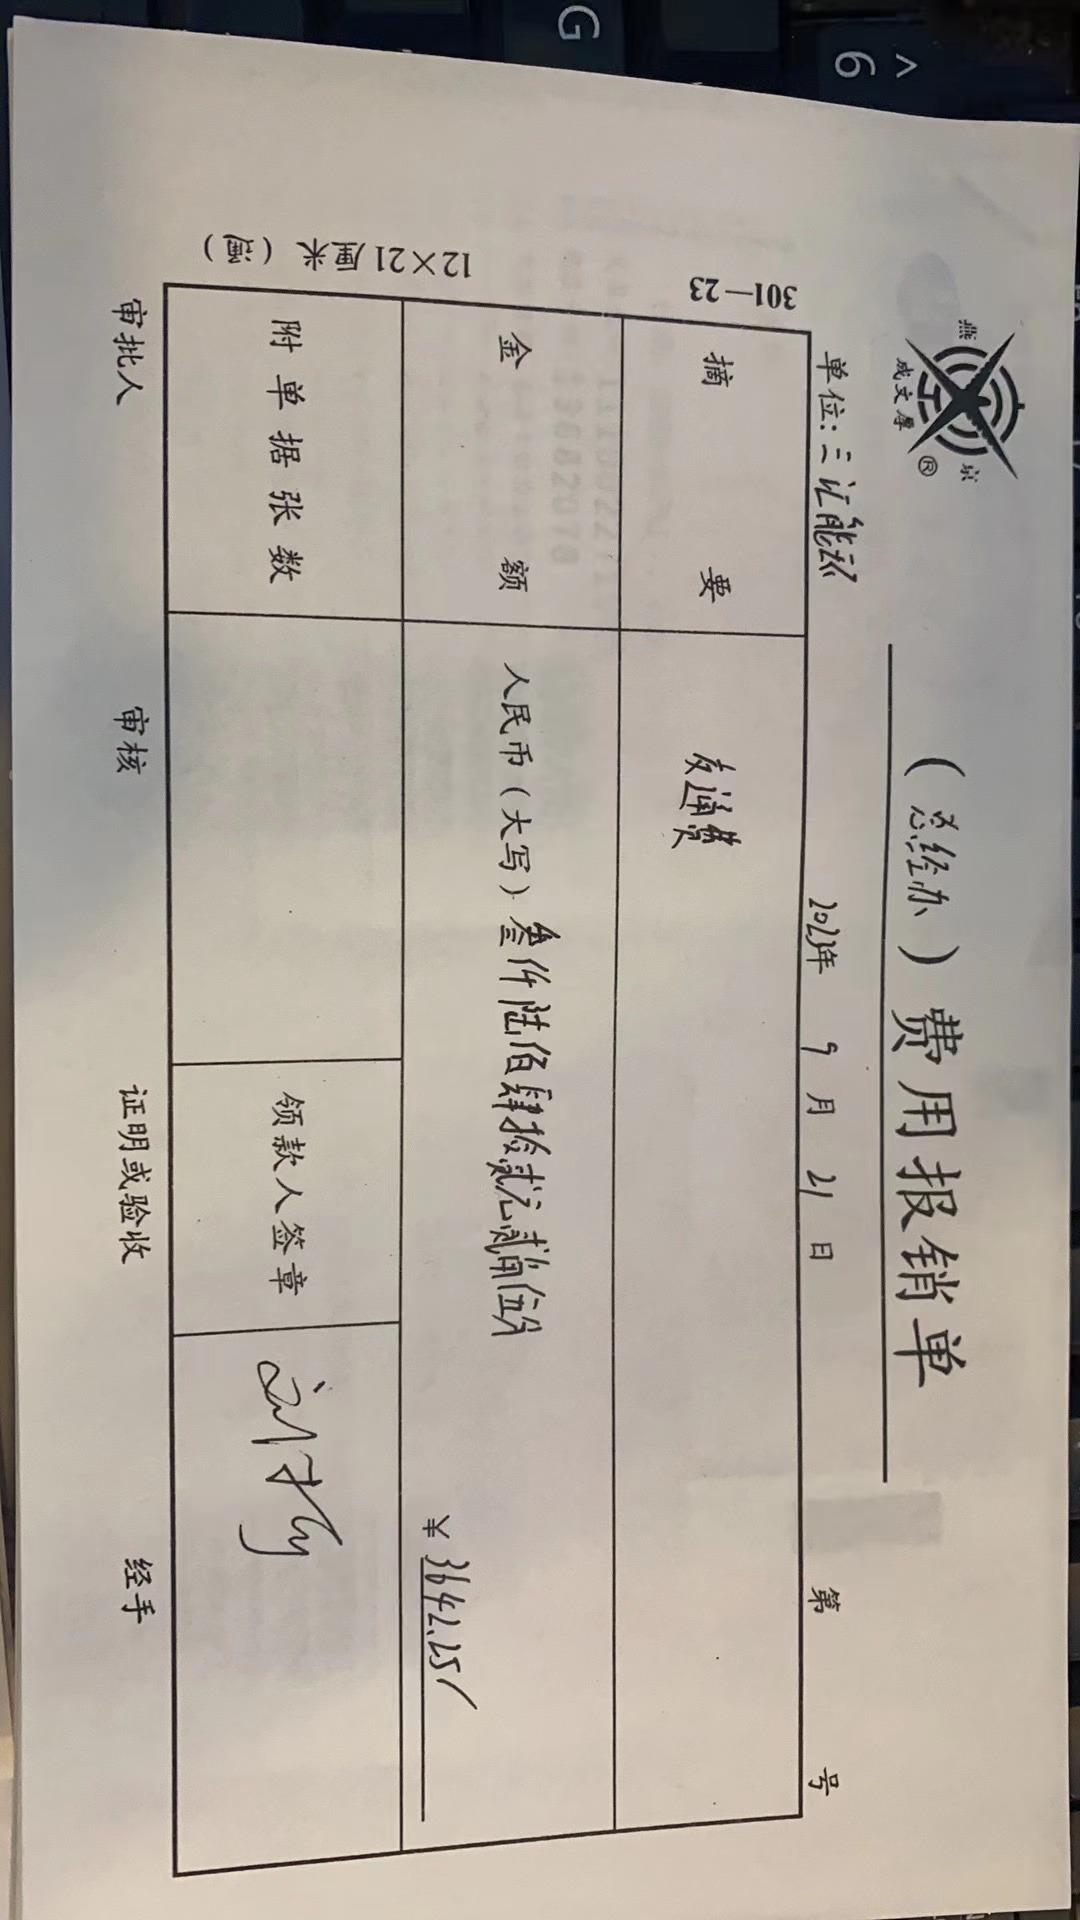 燕京
成文厚®
(总经办)费用报销单
单位:三汇能环 2023年 9月 21日 第 号
301—23
摘要 交通费
金额 人民币(大写)叁仟陆佰肆拾贰元贰角伍分
¥3642.25
附单据张数 领款人签章
12×21厘米(通)
审批人 审核 证明或验收 经手
G
^
6